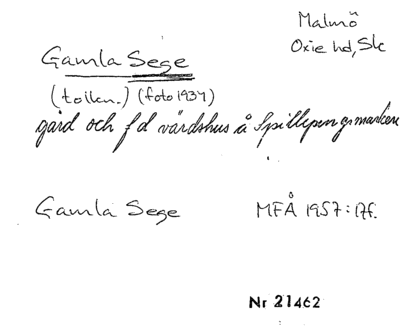 Malmö
Oxie hd, Sk
Gamla Sege
(tolkn.) (foto 1934)
gård och f d värdshus å Spillepengsmarken
Gamla Sege MFÅ 1957:17f.
Nr 21462